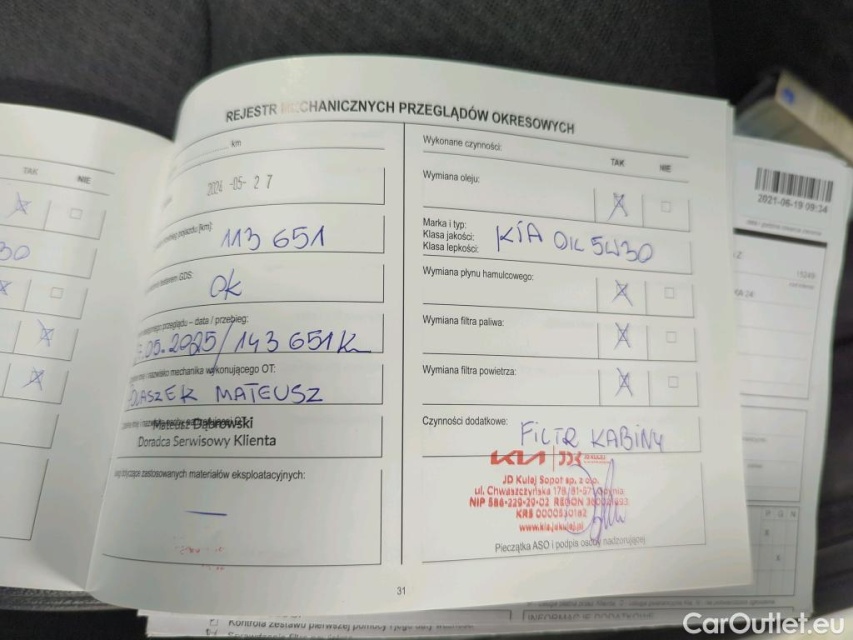 REJESTR MECHANICZNYCH PRZEGLĄDÓW OKRESOWYCH
TAK NIE
30
km
2024 -05- 27
[km]:
113 651
GDS:
Ok
przeglądu – data / przebieg:
.05.2025/143 651k
nazwisko mechanika wykonującego OT:
MATEUSZ
Mateusz Dąbrowski
Doradca Serwisowy Klienta
zastosowanych materiałów eksploatacyjnych:
—
Wykonane czynności:
TAK NIE
Wymiana oleju:
X
Marka i typ:
Klasa jakości:
Klasa lepkości:
KIA OIL 5W30
Wymiana płynu hamulcowego:
X
Wymiana filtra paliwa:
X
Wymiana filtra powietrza:
X
Czynności dodatkowe:
FILTR KABINY
KIA
JD Kulej Sopot sp. z o.o.
ul. Chwaszczyńska
NIP 586-229-29-02 REGON
KRS
Pieczątka ASO i podpis osoby nadzorującej
31
2021-06-19 09:34
Kontrola zestawu pierwszej pomocy i jego daty ważności
CarOutlet.eu